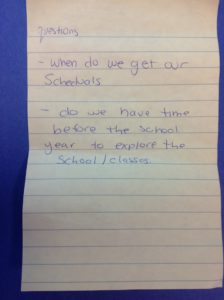 questions
- when do we get our
Scheduals
- do we have time
before the school
year to explore the
school/classes.